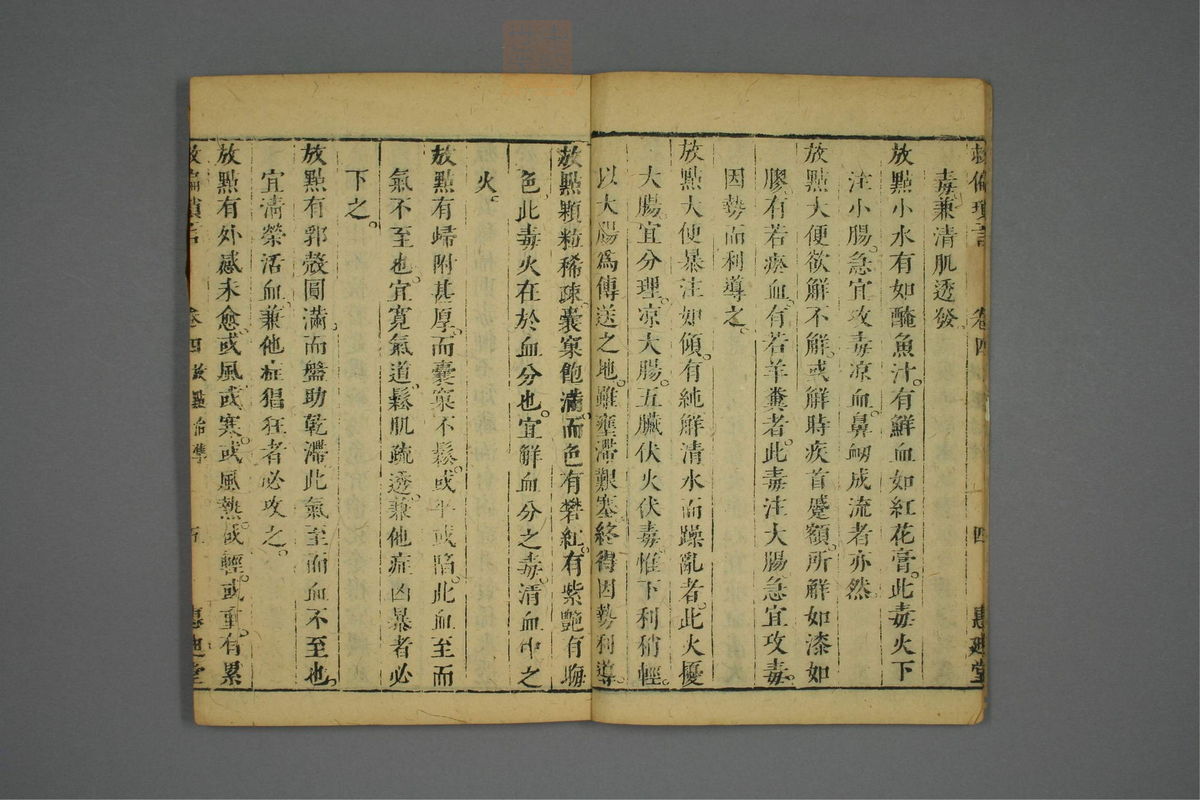 救偏瑣言 卷四 四 惠迪堂
毒兼清肌透發
放點小水有如醃魚汁有鮮血如紅花膏此毒火下
注小腸急宜攻毒凉血鼻衂成流者亦然
放點大便欲解不解或解時疾首蹙額所解如漆如
膠有若瘀血有若羊糞者此毒注大腸急宜攻毒
因勢而利導之
放點大便暴注如傾有純解清水而躁亂者此火擾
大腸宜分理凉大腸五臟伏火伏毒惟下利稍輕
以大腸爲傳送之地雖壅滯艱塞終得因勢利導
放點顆粒稀疎囊窠飽滿而色有礬紅有紫艷有晦
色此毒火在於血分也宜解血分之毒清血中之
火
放點有歸附甚厚而囊窠不鬆或平或陷此血至而
氣不至也宜寬氣道鬆肌疏透兼他症凶暴者必
下之
放點有郛殼圓滿而盤助乾滯此氣至而血不至也
宜清榮活血兼他症猖狂者必攻之
放點有外感未愈或風或寒或風熱或輕或重有累
救偏瑣言 卷四 放點治準 惠迪堂